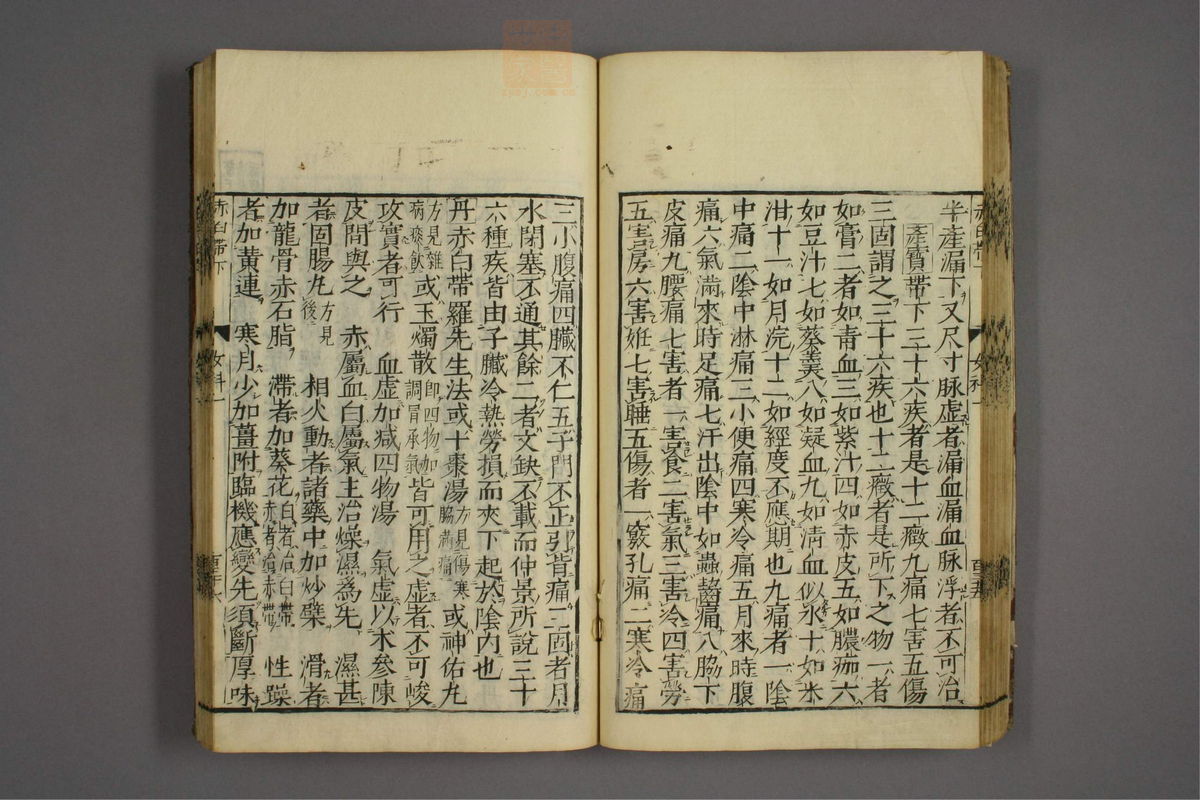 半產漏下又尺寸脉虛者漏血漏血脉浮者不可治
產寶帶下三十六疾者是十二癥九痛七害五傷
三固謂之三十六疾也十二癥者是所下之物一者
如膏二者如青血三如紫汁四如赤皮五如膿痂六
如豆汁七如葵羹八如凝血九如淸血似水十如米
泔十一如月浣十二如經度不應期也九痛者一陰
中痛二陰中淋痛三小便痛四寒冷痛五月來時腹
痛六氣滿來時足痛七汗出陰中如蟲齧痛八脇下
皮痛九腰痛七害者一害食二害氣三害冷四害勞
五害房六害姙七害睡五傷者一竅孔痛二寒冷痛
三小腹痛四臟不仁五子門不正引背痛三固者月
水閉塞不通其餘二者文缺不載而仲景所說三十
六種疾皆由子臟冷熱勞損而夾下起於陰内也
丹赤白帶羅先生法或十棗湯方見傷寒脇滿痛或神佑丸
方見雜病痰飲或玉燭散卽四物加調胃承氣皆可用之虛者不可峻
攻實者可行 血虛加减四物湯 氣虛以木參陳
皮間與之 赤屬血白屬氣主治燥濕為先 濕甚
者固腸丸方見後 相火動者諸藥中加炒檗 滑者
加龍骨赤石脂 滯者加葵花白者治白帶赤者治赤帶 性躁
者加黄連 寒月少加薑附臨機應變先須斷厚味
赤白帶下
女科一